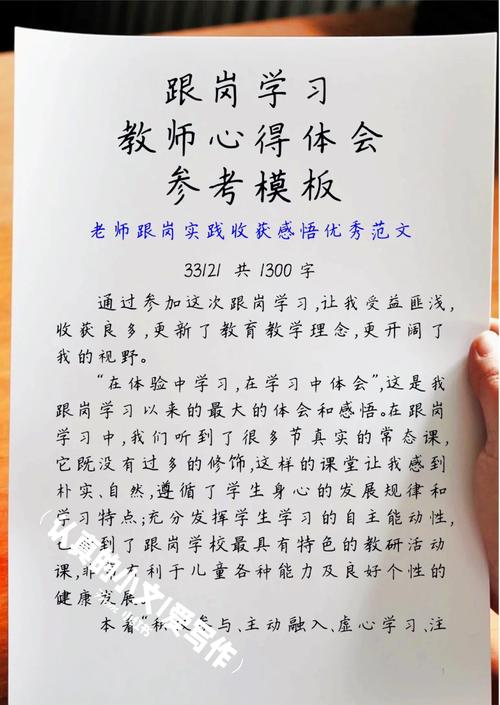 跟岗学习
教师心得体会
参考模板
老师跟岗实践收获感悟优秀范文
33121 共1300字
通过参加这次跟岗学习,让我受益匪浅,
收获良多,更新了教育教学理念,更开阔了
我的视野。
“在体验中学习,在学习中体会”,这是我
跟岗学习以来的最大的体会和感悟。在跟岗
学习中,我们听到了很多节真实的常态课,
它既没有过多的修饰,这样的课堂让我感到
朴实、自然,遵循了学生身心的发展规律和
学习特点;充分发挥学生学习的自主能动性,
到了跟岗学校最具有特色的教研活动
课,非 有利于儿童各种能力及良好个性的
健康发展。
本着“积 参与、主动融入、虚心学习、注
(认真的小文/爱写作)
小红书